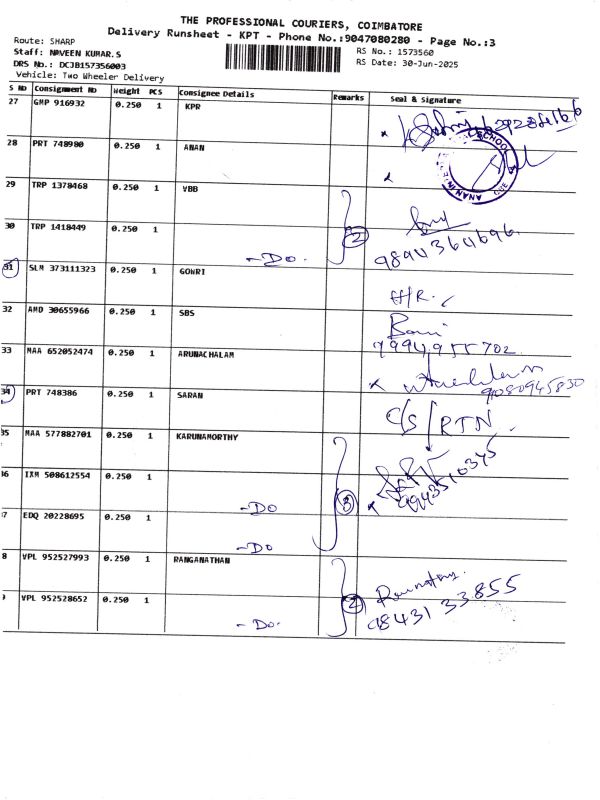 THE PROFESSIONAL COURIERS, COIMBATORE
Delivery Runsheet - KPT - Phone No.:9047080280 - Page No.:3
Route: SHARP
Staff: NAVEEN KUMAR.S
DRS No.: DCJB157356003
Vehicle: Two Wheeler Delivery
RS No.: 1573560
RS Date: 30-Jun-2025
S No Consignment No Weight PCS Consignee Details Remarks Seal & Signature
27 GMP 916932 0.250 1 KPR
28 PRT 748980 0.250 1 ANAN
SCHOOL
29 TRP 1378468 0.250 1 VBB
30 TRP 1418449 0.250 1 -Do. 2
9894364696.
31 SLM 373111323 0.250 1 GOWRI
H/R.
32 AMD 30655966 0.250 1 SBS
7994955702
33 MAA 652052474 0.250 1 ARUNACHALAM
9080945830
34 PRT 748386 0.250 1 SARAN
C/S/RTN.
35 MAA 577882701 0.250 1 KARUNAMORTHY
9943510345
36 IXM 508612554 0.250 1 -Do 3
37 EDQ 20228695 0.250 1 -Do
8 VPL 952527993 0.250 1 RANGANATHAN
VPL 952528652 0.250 1 -Do. 2
9843133855